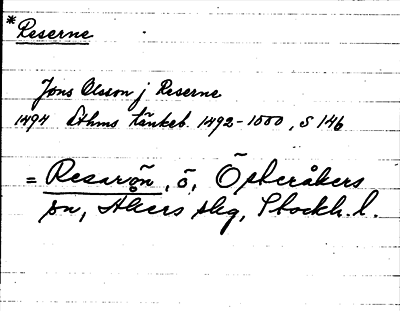 * Reserne
Jons Olsson j Reserne
1494 Sthms tänkeb. 1492-1500, S 146
= Resarön, ö, Österåkers
sn, Åkers skg, Stockh. l.